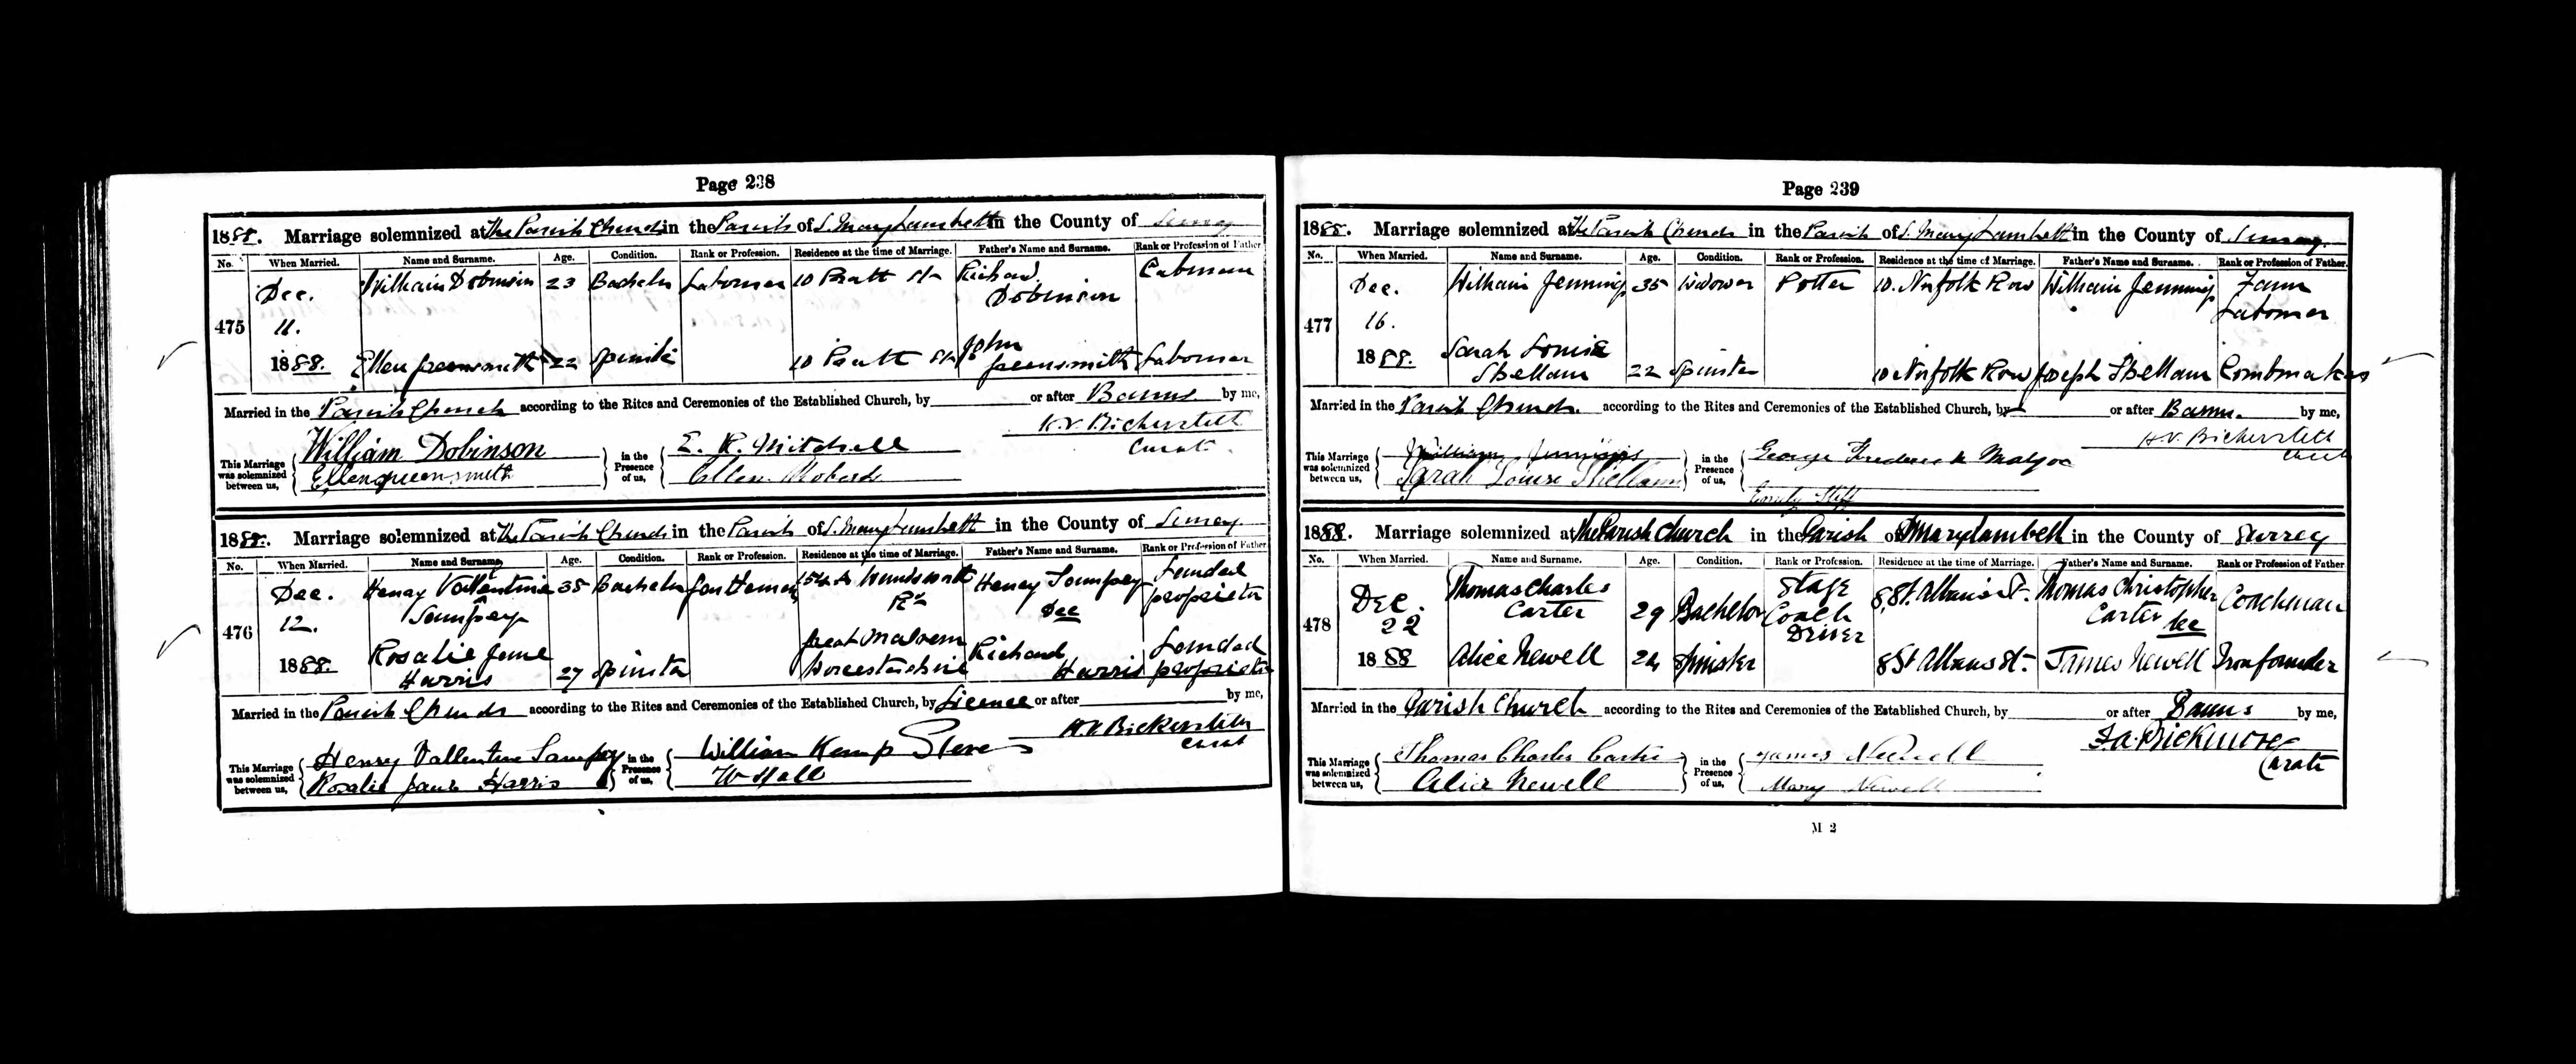 Page 238
1888. Marriage solemnized at The Parish Church in the Parish of S. Mary Lambeth in the County of Surrey
No. When Married. Name and Surname. Age. Condition. Rank or Profession. Residence at the time of Marriage. Father's Name and Surname. Rank or Profession of Father
475 Dec. 11. 1888. William Dobinson 23 Bachelor Labourer 10 Pratt St Richard Dobinson Cabman
Ellen Greensmith 22 Spinster 10 Pratt St John Greensmith Labourer
Married in the Parish Church according to the Rites and Ceremonies of the Established Church, by or after Banns by me,
H.V. Bickersteth
Curate
This Marriage was solemnized between us, William Dobinson in the Presence of us, E. R. Mitchell
Ellen Greensmith Ellen Roberts
1888. Marriage solemnized at The Parish Church in the Parish of S. Mary Lambeth in the County of Surrey.
No. When Married. Name and Surname. Age. Condition. Rank or Profession. Residence at the time of Marriage. Father's Name and Surname. Rank or Profession of Father
476 Dec. 12. 1888. Henry Vallentine Sampey 38 Bachelor Gentleman Wandsworth Rd Henry Sampey Dec Landed proprietor
Rosalie Jane Harris 27 Spinster Great Malvern Worcestershire Richard Harris Landed proprietor
Married in the Parish Church according to the Rites and Ceremonies of the Established Church, by Licence or after by me,
H.V. Bickersteth
Curate
This Marriage was solemnized between us, Henry Vallentine Sampey in the Presence of us, William Kemp Stevens
Rosalie Jane Harris W Hall
Page 239
1888. Marriage solemnized at The Parish Church in the Parish of S. Mary Lambeth in the County of Surrey.
No. When Married. Name and Surname. Age. Condition. Rank or Profession. Residence at the time of Marriage. Father's Name and Surname. Rank or Profession of Father.
477 Dec. 16. 1888. William Jennings 35 Widower Potter 10. Norfolk Row William Jennings Farm Labourer
Sarah Louise Shellam 22 Spinster 10 Norfolk Row Joseph Shellam Combmaker
Married in the Parish Church. according to the Rites and Ceremonies of the Established Church, by or after Banns. by me,
H.V. Bickersteth
Curate
This Marriage was solemnized between us, William Jennings in the Presence of us, George Frederick
Sarah Louise Shellam Emily Stiff
1888. Marriage solemnized at The Parish Church in the Parish of St Mary Lambeth in the County of Surrey
No. When Married. Name and Surname. Age. Condition. Rank or Profession. Residence at the time of Marriage. Father's Name and Surname. Rank or Profession of Father
478 Dec. 22 1888 Thomas Charles Carter 29 Bachelor Stage Coach Driver 8, St. Albans St. Thomas Christopher Carter Dec Coachman
Alice Newell 24 Spinster 8 St Albans St. James Newell Ironfounder
Married in the Parish Church according to the Rites and Ceremonies of the Established Church, by or after Banns by me,
F.A. Bickmore
Curate
This Marriage was solemnized between us, Thomas Charles Carter in the Presence of us, James Newell
Alice Newell Mary Newell
M 2